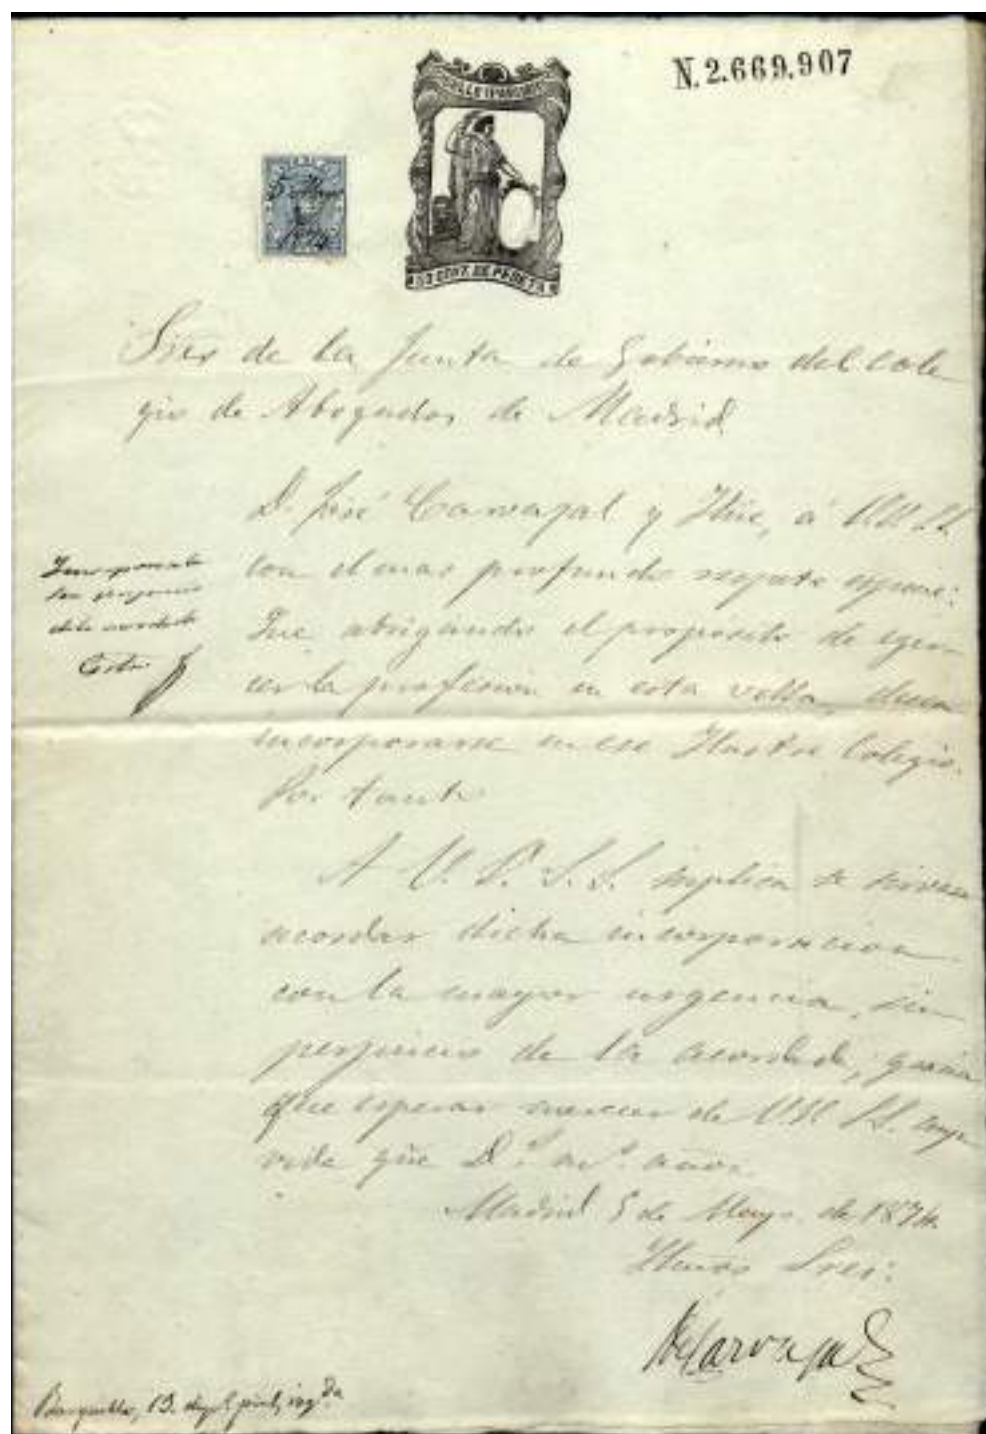 N. 2.669.907
5 Mayo
1874
50 CENT. DE PESETA
Sres de la Junta de Gobierno del Cole
gio de Abogados de Madrid
D. José Carvajal y Hüe, á V.V. S.S.
con el mas profundo respeto expone:
Que abrigando el proposito de ejer
cer la profesion en esta villa, desea
incorporarse en ese Ilustre Colegio.
Por tanto
A V.V. S.S. suplica se sirvan
acordar dicha incorporacion
con la mayor urgencia, sin
perjuicio de la acordada, gracia
que espera merecer de V.V. S.S. cuya
vida gũe D.s m.s años.
Madrid 5 de Mayo de 1874.
Iltmos Sres:
Incorporado
sin perjuicio
de la acordada
JCarvajal
Barquillo, 13. dupl. pral, izq.da